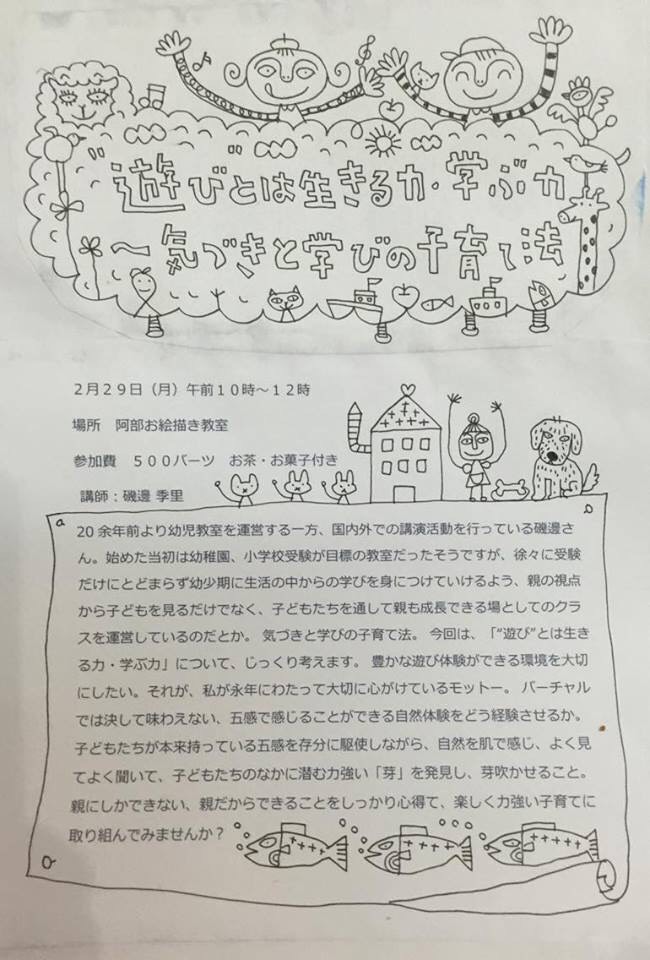 "遊びとは生きる力・学ぶ力
〜気づきと学びの子育て法
２月２９日（月）午前１０時～１２時
場所　阿部お絵描き教室
参加費　５００バーツ　お茶・お菓子付き
講師：磯邊 季里
20 余年前より幼児教室を運営する一方、国内外での講演活動を行っている磯邊さ
ん。始めた当初は幼稚園、小学校受験が目標の教室だったそうですが、徐々に受験
だけにとどまらず幼少期に生活の中からの学びを身につけていけるよう、親の視点
から子どもを見るだけでなく、子どもたちを通して親も成長できる場としてのクラ
スを運営しているのだとか。 気づきと学びの子育て法。 今回は、「“遊び”とは生き
る力・学ぶ力」について、じっくり考えます。 豊かな遊び体験ができる環境を大切
にしたい。それが、私が永年にわたって大切に心がけているモットー。 バーチャル
では決して味わえない、五感で感じることができる自然体験をどう経験させるか。
子どもたちが本来持っている五感を存分に駆使しながら、自然を肌で感じ、よく見
てよく聞いて、子どもたちのなかに潜む力強い「芽」を発見し、芽吹かせること。
親にしかできない、親だからできることをしっかり心得て、楽しく力強い子育てに
取り組んでみませんか？